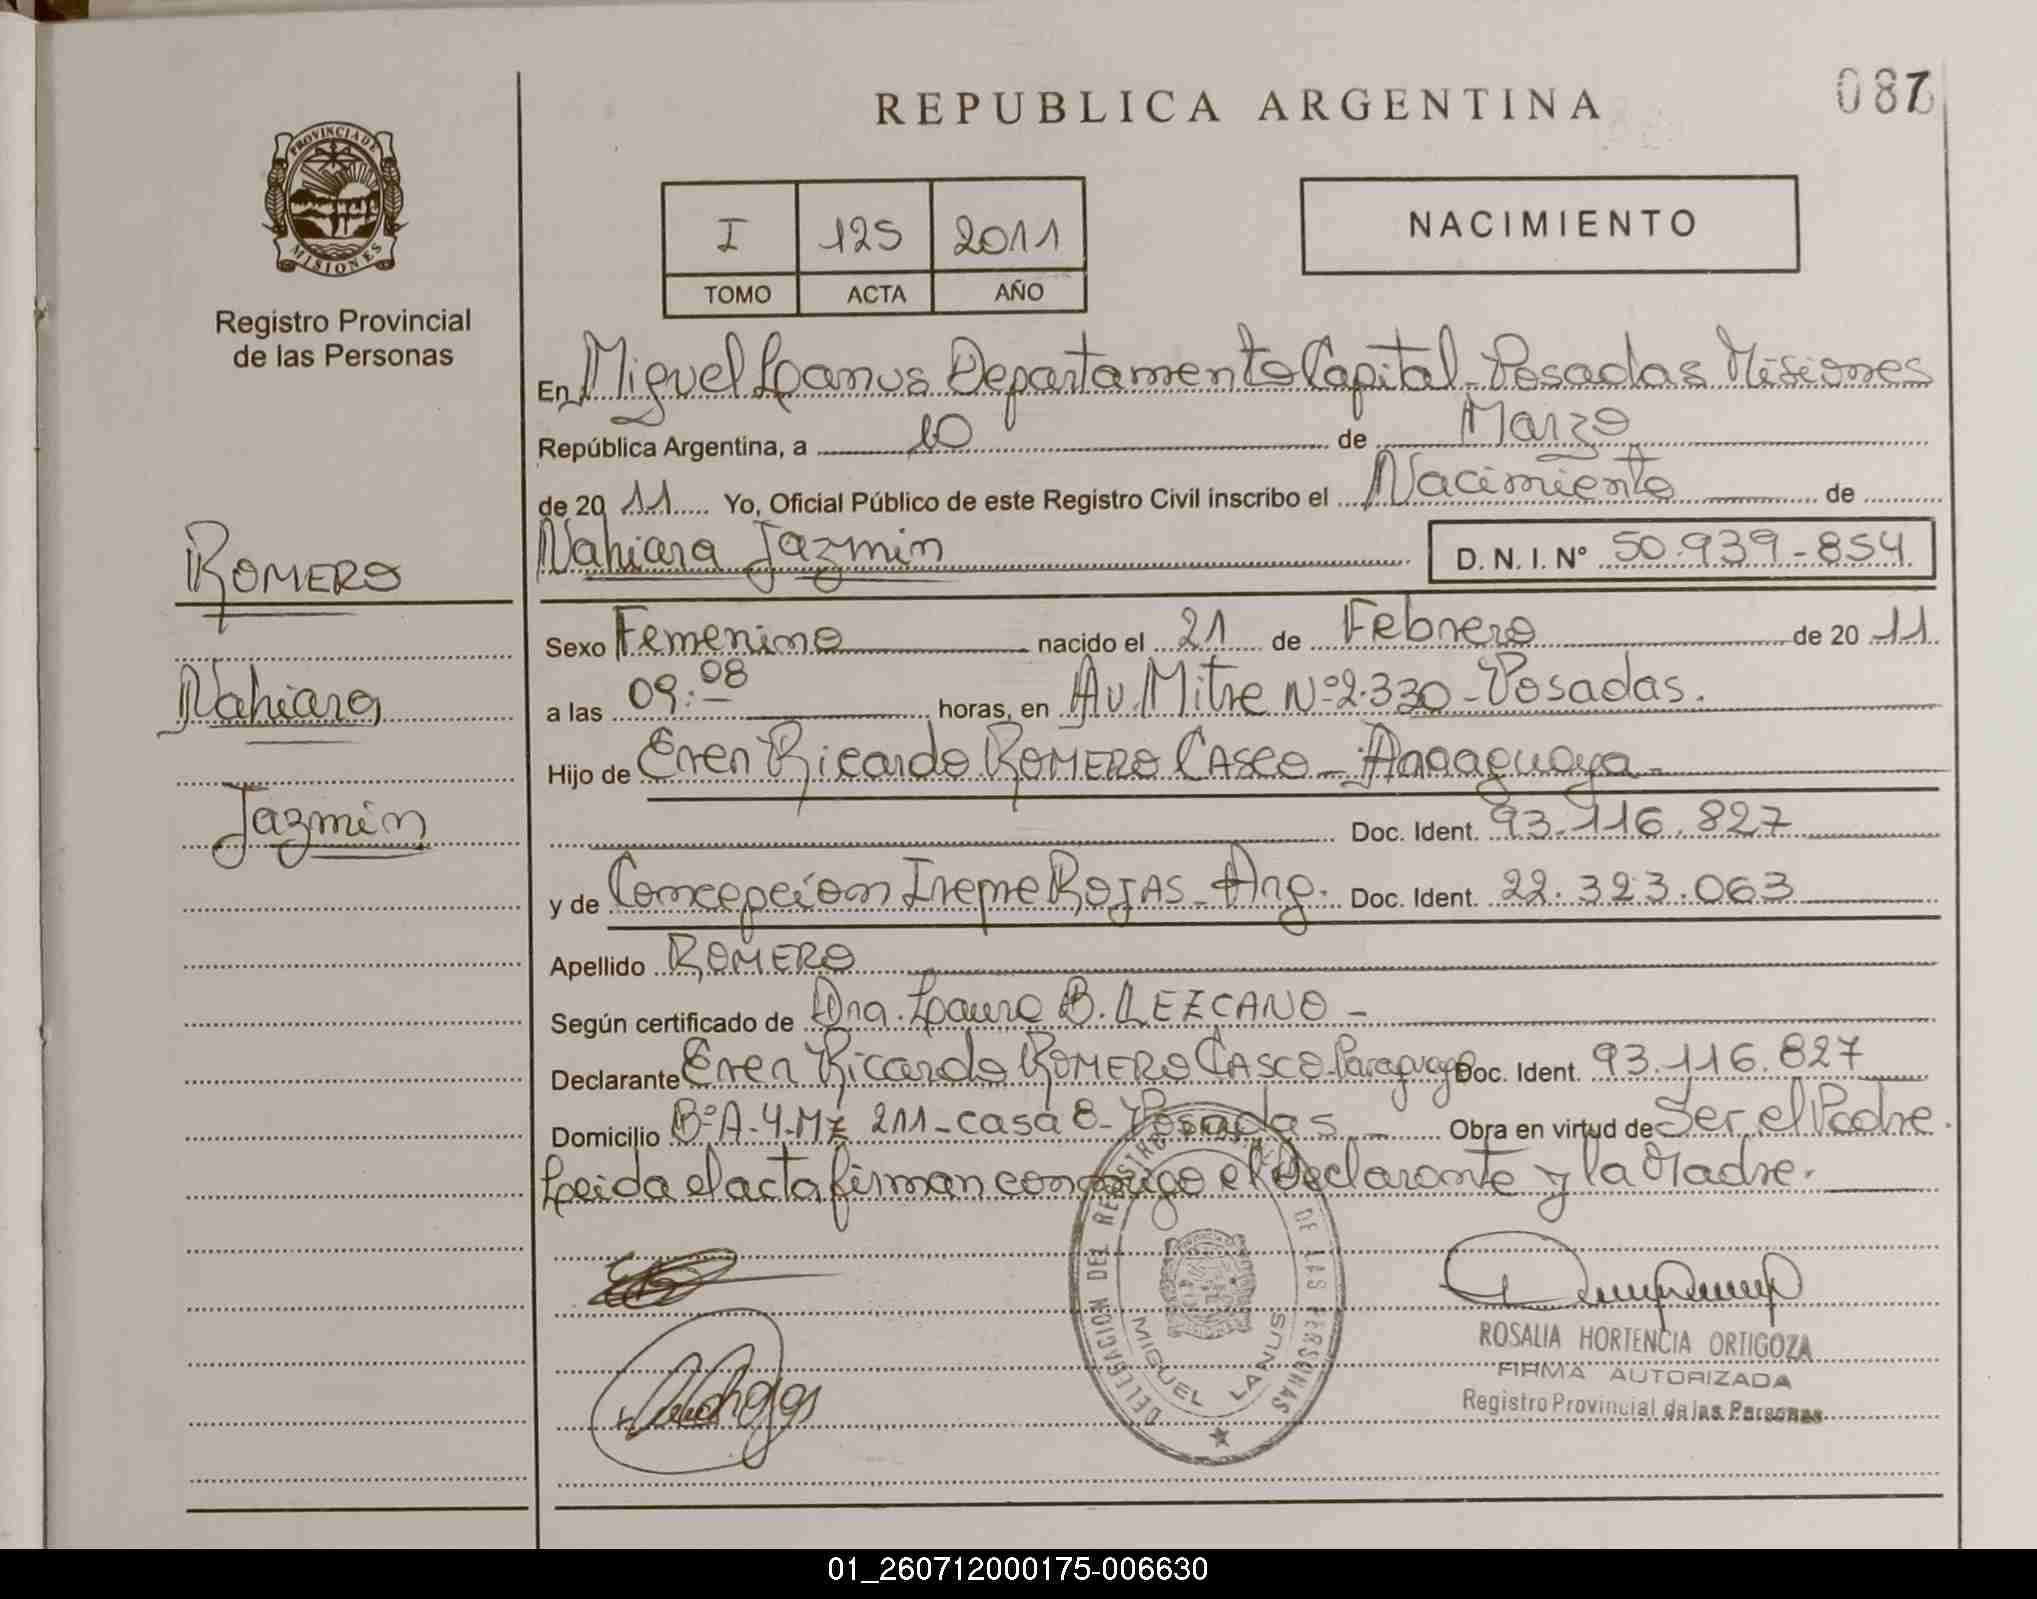 REPUBLICA ARGENTINA
087
PROVINCIA DE MISIONES
Registro Provincial
de las Personas
I 125 2011
TOMO ACTA AÑO
NACIMIENTO
En Miguel Lanus Departamento Capital - Posadas Misiones
República Argentina, a 10 de Marzo
de 2011 Yo, Oficial Público de este Registro Civil inscribo el Nacimiento de
Nahiara Jazmin D. N. I. Nº 50.939-854
ROMERO
Nahiara
Jazmin
Sexo Femenino nacido el 21 de Febrero de 2011
a las 09:08 horas, en Av. Mitre Nº 2.330 - Posadas.
Hijo de Ricardo ROMERO CASCO -
Doc. Ident. 93.116.827
y de Concepcion Irene ROJAS - Arg. Doc. Ident. 22.323.063
Apellido ROMERO
Según certificado de Dra. Laura B. LEZCANO -
Declarante Ricardo ROMERO CASCO Paraguayo Doc. Ident. 93.116.827
Domicilio Bº A-4-Mz 211 - casa 8 - Posadas Obra en virtud de Ser el Padre.
Leida el acta firman conmigo el Declarante y la Madre.
DELEGACION DEL REGISTRO DE LAS PERSONAS
MIGUEL LANUS
ROSALIA HORTENCIA ORTIGOZA
FIRMA AUTORIZADA
Registro Provincial de las Personas
01_260712000175-006630